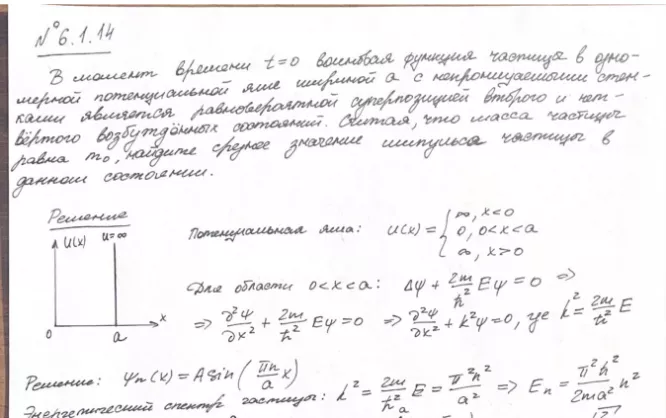 № 6.1.14
В момент времени t=0 волновая функция частицы в одно-
мерной потенциальной яме шириной a с непроницаемыми стен-
ками является равновероятной суперпозицией второго и чет-
вёртого возбуждённых состояний. Считая, что масса частицы
равна m₀, найдите среднее значение импульса частицы в
данном состоянии.
Решение
U(x) U=∞
0 a x
Потенциальная яма: U(x) = { ∞, x<0
0, 0<x<a
∞, x>0
Для области 0<x<a: Δψ + 2m/ħ² Eψ = 0 ⇒
⇒ ∂²ψ/∂x² + 2m/ħ² Eψ = 0 ⇒ ∂²ψ/∂x² + k²ψ = 0, где k² = 2m/ħ² E
Решение: ψn(x) = A sin(πn/a x)
Энергетический спектр частицы: k² = 2m/ħ² E = π²n²/a² ⇒ En = π²ħ²/2ma² n²